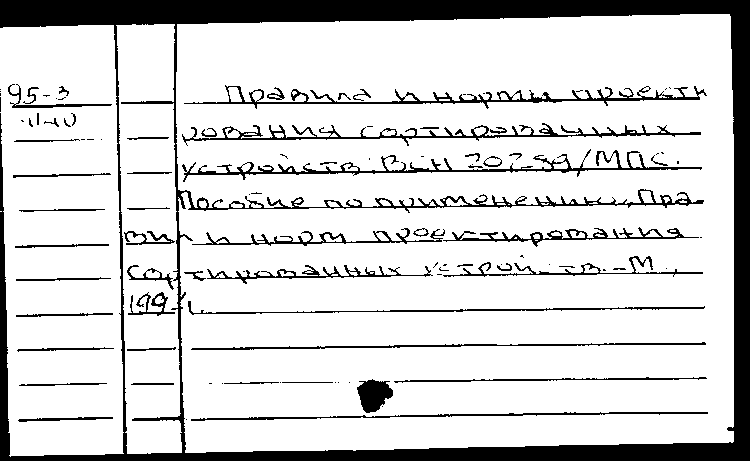 95-3
Правила и нормы проекти
рования сортировочных
устройств. ВСН 207-89/МПС.
Пособие по применению „Пра-
вил и норм проектирования
сортировочных устройств.-М.,
199